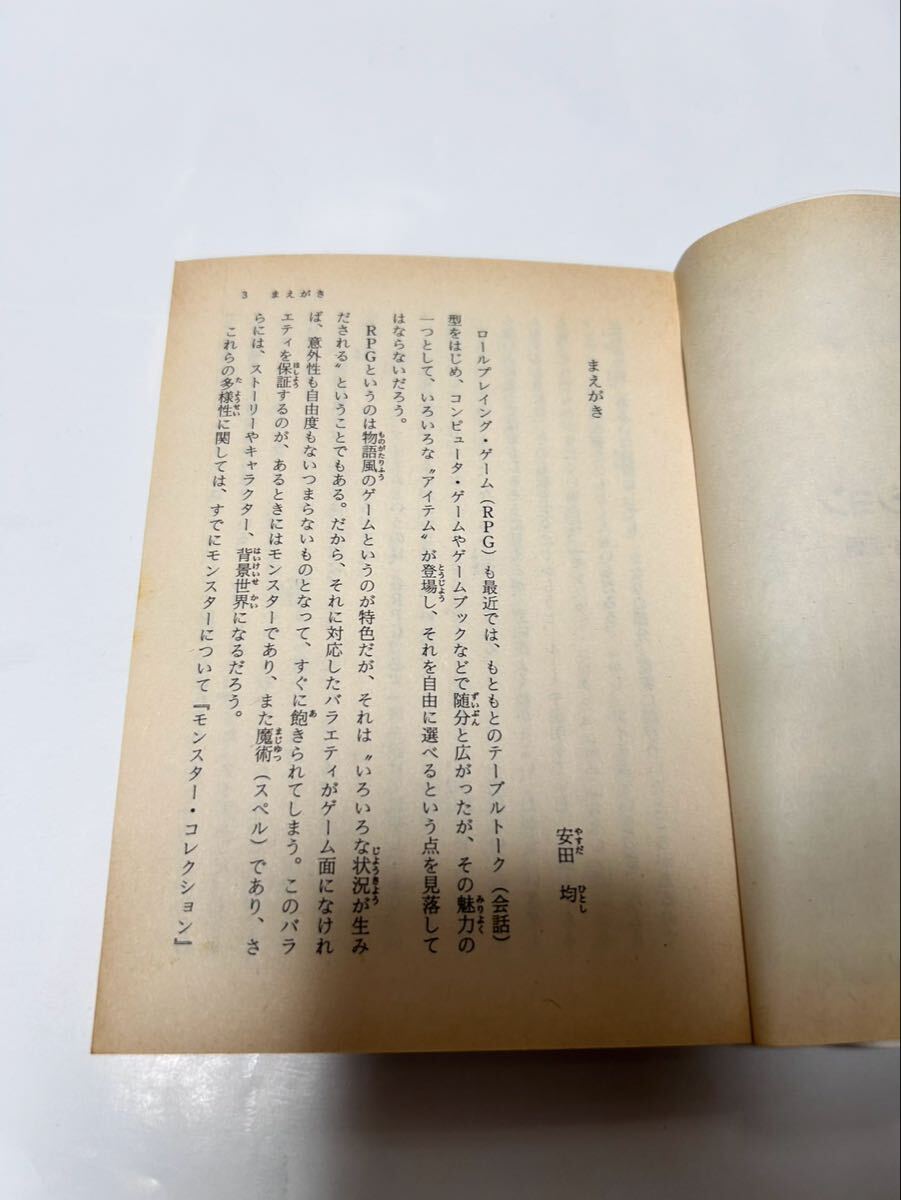 3 まえがき
まえがき
安田 均
ロールプレイング・ゲーム（RPG）も最近では、もともとのテーブルトーク（会話）
型をはじめ、コンピュータ・ゲームやゲームブックなどで随分と広がったが、その魅力の
一つとして、いろいろな〝アイテム〟が登場し、それを自由に選べるという点を見落して
はならないだろう。
RPGというのは物語風のゲームというのが特色だが、それは〝いろいろな状況が生み
だされる〟ということでもある。だから、それに対応したバラエティがゲーム面になけれ
ば、意外性も自由度もないつまらないものとなって、すぐに飽きられてしまう。このバラ
エティを保証するのが、あるときにはモンスターであり、また魔術（スペル）であり、さ
らには、ストーリーやキャラクター、背景世界になるだろう。
これらの多様性に関しては、すでにモンスターについて『モンスター・コレクション』